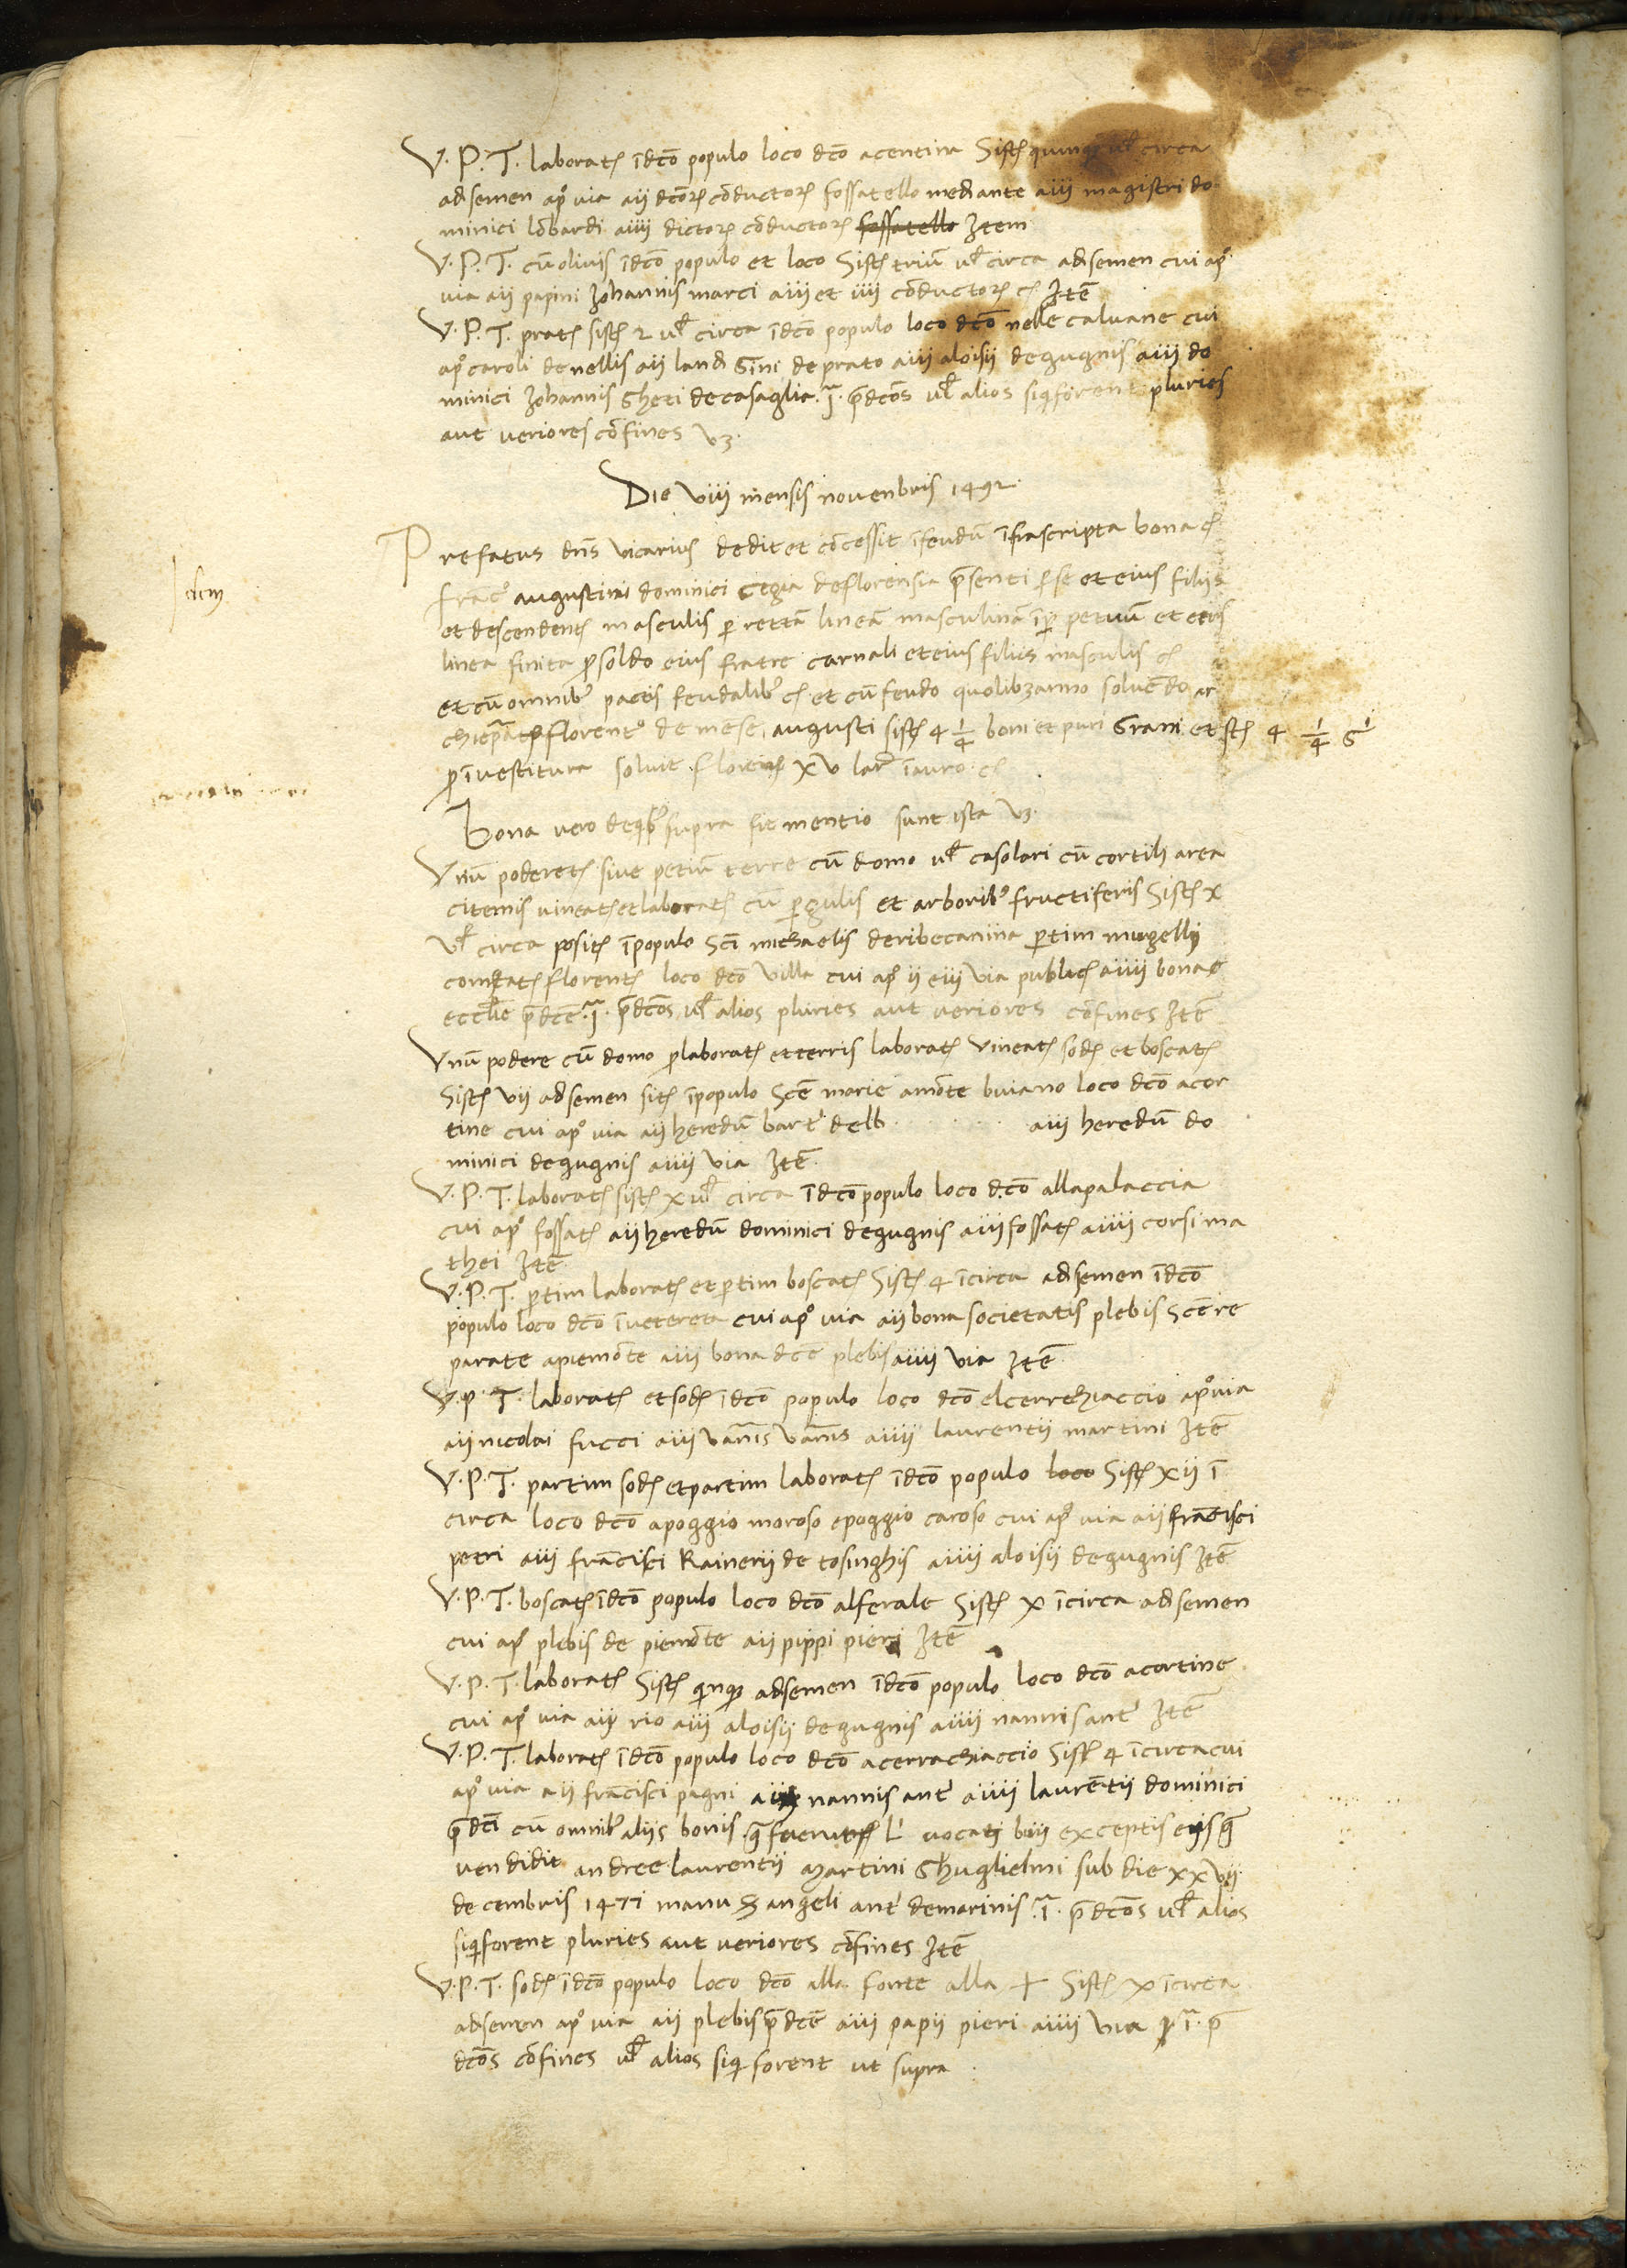 V. P. T. laborat᷒ ī dc̄o populo loco dc̄o acentina Sist᷒ quinqꝫ ul̄ circa
ad semen apo via aij dc̄or᷒ conductor᷒ fossatello mediante aiij magistri do
minici lōbardi aiiij dictor᷒ cōductor᷒ fossatello Item
V. P. T. cū olivis ī dc̄o populo et loco Sist᷒ triū ul̄ circa ad semen cui apo
via aij papini Johannis marci aiij et iiij conductor᷒ c᷒ Itē
V. P. T. prat᷒ sist᷒ 2 ul̄ circa ī dc̄o populo loco dc̄o nelle calvane cui
apo caroli de nellis aij landi Gini de prato aiij aloisii de gugnis aiiij do
minici Johannis Gheri de casaglia. īa. p̄dc̄os ul̄ alios siqi forent pluries
aut veriores cōfines vꝫ.
Die viii mensis novenbris 1492
Prefatus dn̄s vicarius dedit et concessit ī feudū īfrascripta bona c᷒
Idem
franco augustini dominici cegia de florensia p̄senti ꝑ se et eius filiis
et descendent᷒ masculis ꝑ rettā lineā masculinā ī ꝑpetuū et eius
linea finita ꝓ soldo eius fratre carnali et eius filiis masculis c᷒
et cū omnibꝫ pactis feudalibꝫ c᷒ et cū feudo quolibꝫ anno solvēdo ar
chiep̄atui florento de mese augusti sist᷒ 4 1/4 boni et puri Grani et st᷒ 4 1/4 Gi
ꝓ īvestitura solvit floren᷒ xv lar ī auro c᷒
Bona vero de qbꝫ supra fit mentio sunt ista vꝫ.
Unū poderet᷒ sive petiū terre cū domo ul̄ casolari cū cortili area
citernis vineat᷒ et laborat᷒ cū ꝑgulis et arboribꝫ fructiferis Sist᷒ x
ul̄ circa posit᷒ ī populo Sci michaelis de ribecanina ꝑtim mugelli
comitat᷒ florent᷒ loco dc̄o villa cui apo ij eiij via public᷒ aiiij bona
eccl̄ie p̄dc̄e. īa. p̄dc̄os ul̄ alios pluries aut veriores cōfines Itē
Unū podere cū domo ꝓ laborat᷒ et terris laborat᷒ vineat᷒ sod᷒ et boscat᷒
Sist᷒ vii ad semen sit᷒ ī populo Scē marie amōte buiano loco dc̄o acor
tine cui apo via aij heredū barti delb . . . . . . aiij heredū do
minici de gugnis aiiij via Itē
V. P. T. laborat᷒ sist᷒ x ul̄ circa ī dc̄o populo loco dc̄o alla palaccia
cui apo fossat᷒ aij heredū dominici de gugnis aiij fossat᷒ aiiij corsi ma
thei Itē
V. P. T. ꝑtim laborat᷒ et ꝑtim boscat᷒ Sist᷒ 4 ī circa ad semen ī dc̄o
populo loco dc̄o ī vetereta cui apo via aij bona societatis plebis Scē re
parate apiemōte aiij bona dc̄e plebis aiiij via Itē
V. P. T. laborat᷒ et sod᷒ ī dc̄o populo loco dc̄o el cerrchiaccio apo via
aij nicolai fucci aiij vānis vānis aiiij laurentii martini Itē
V. P. T. partim sod᷒ et partim laborat᷒ ī dc̄o populo loco Sist᷒ xij ī
circa loco dc̄o apoggio moroso epoggio caroso cui apo via aij frācisci
petri aiij frācisci Rainerii de tosinghis aiiij aloisii de gugnis Itē
V. P. T. boscat᷒ ī dc̄o populo loco dc̄o alferale Sist᷒ x ī circa ad semen
cui apo plebis de piemōte aij pippi pieri Itē
V. P. T. laborat᷒ Sist᷒ qinqꝫ ad semen ī dc̄o populo loco dc̄o acortine
cui apo via aij rio aiij aloisii de gugnis aiiij nannis anti Itē
V. P. T. laborat᷒ ī dc̄o populo loco dc̄o acerrachiaccio Sist᷒ 4 ī circa cui
apo via aij frācisci pagni aiij nannis anti aiiij laurētii dominici
p̄dc̄i cū omnibꝫ aliis bonis q̄ fuerut Li vocati buij exceptis eijs q̄
vendidit andree laurentii martini Ghuglielmi sub die xxvij
decembris 1471 manu S angeli anti de marinis. īa. p̄dc̄os ul̄ alios
siqi forent pluries aut veriores cōfines Itē
V. P. T. sod᷒ ī dc̄o populo loco dc̄o alla fonte alla + Sist᷒ x ī circa
ad semen apo via aij plebis p̄dc̄e aiij papij pieri aiiij via īa. p̄
dc̄os cōfines ul̄ alios siqi forent ut supra